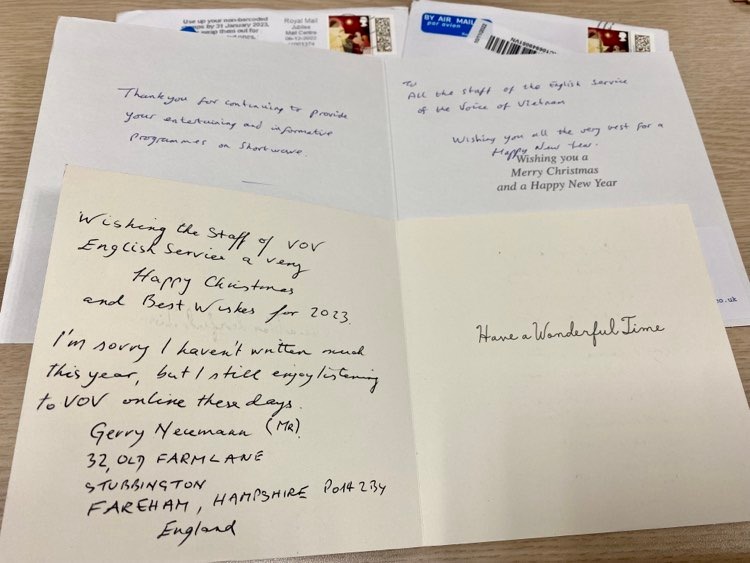 Use up your non-barcoded
by 31 January 2023,
them out for
Royal Mail
Jubilee
Mail Centre
06-12-2022
BY AIR MAIL
par avion
Thankyou for continuing to provide
your entertaining and informative
programmes on Shortwave.
To
All the Staff of the English Service
of the Voice of Vietnam
Wishing you all the very best for a
Happy New Year.
Wishing you a
Merry Christmas
and a Happy New Year
Wishing the Staff of VOV
English Service a very
Happy Christmas
and Best Wishes for 2023.
I'm sorry I haven't written much
this year, but I still enjoy listening
to VOV online these days.
Gerry Neumann (Mr).
32, OLD FARM LANE
STUBBINGTON
FAREHAM, HAMPSHIRE PO14 2BY
England
Have a Wonderful Time